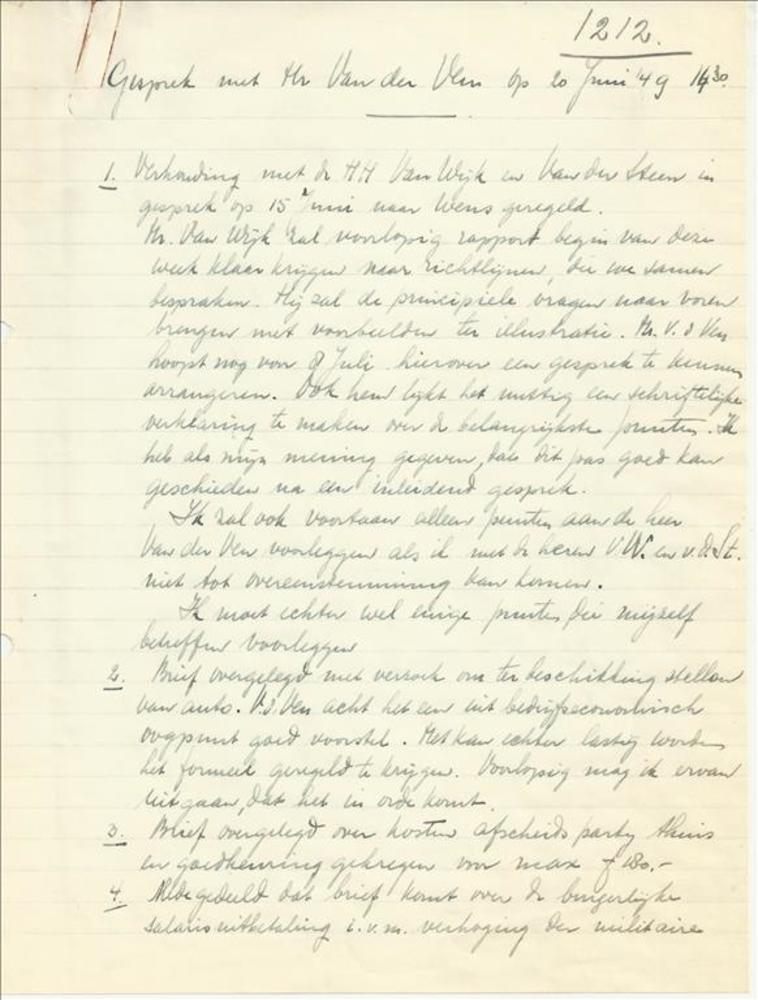 1212.
Gesprek met Hr Van der Ven op 20 Juni '49 14³⁰.
1. Verhouding met de HH Van Wijk en Van der Steen in
gesprek op 15 Juni naar wens geregeld.
Hr. Van Wijk zal voorlopig rapport begin van deze
week klaar krijgen naar richtlijnen, die we samen
bespraken. Hij zal de principiele vragen naar voren
brengen met voorbeelden ter illustratie. Hr. V. d Ven
hoopt nog voor 8 Juli hierover een gesprek te kunnen
arrangeren. Ook hem lijkt het nuttig een schriftelijke
verklaring te maken over de belangrijkste punten. Ik
heb als mijn mening gegeven, dat dit pas goed kan
geschieden na een inleidend gesprek.
Ik zal ook voortaan alleen punten aan de heer
Van der Ven voorleggen als ik met de heren V.W. en v.d.St.
niet tot overeenstemming kan komen.
Ik moet echter wel enige punten die mijzelf
betreffen voorleggen
2. Brief overgelegd met verzoek om ter beschikking stellen
van auto. V.d.Ven acht het een uit bedrijfseconomisch
oogpunt goed voorstel. Het kan echter lastig worden
het formeel geregeld te krijgen. Voorlopig mag ik ervan
uitgaan, dat het in orde komt.
3. Brief overgelegd over kosten afscheids party thuis
en goedkeuring gekregen voor max f 180.-
4. Medegedeeld dat brief komt over de burgerlijke
salarisuitbetaling i.v.m. verhoging der militaire